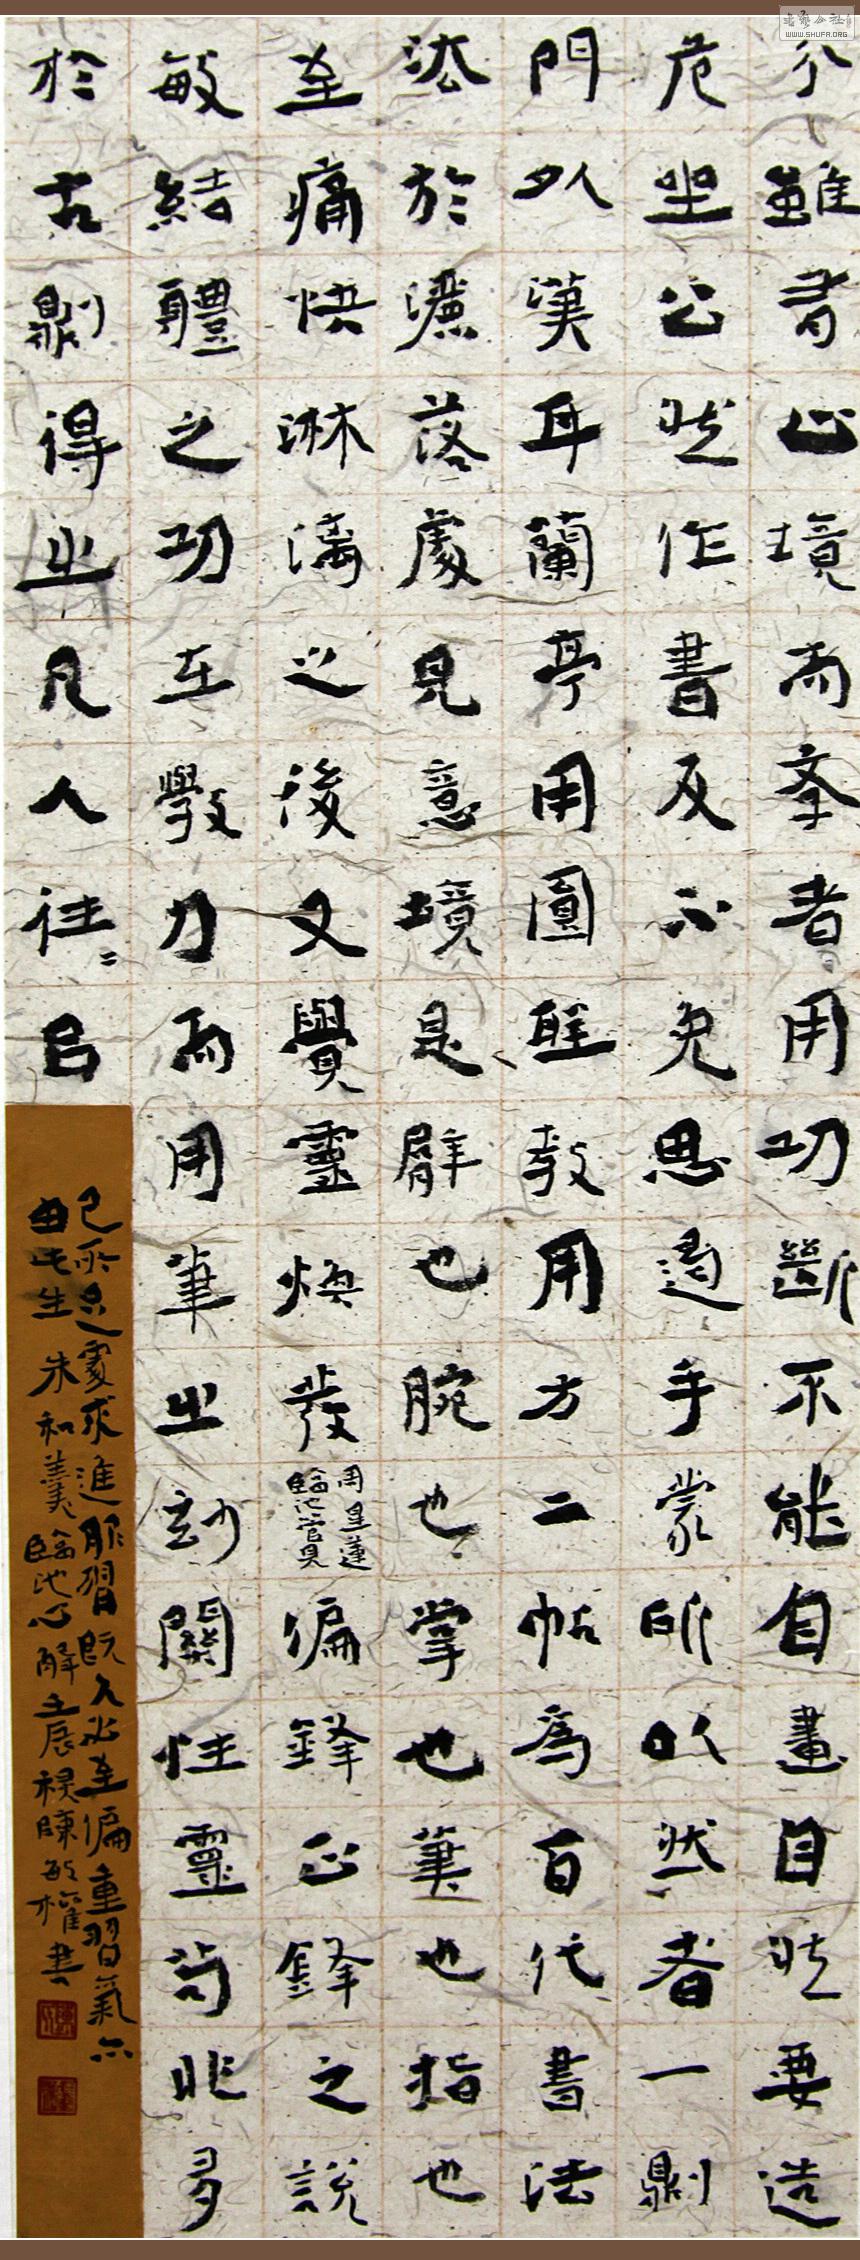 分雖有止境而學者用功斷不能自畫自然要造
危坐公然作書反不免思遏手蒙所以然者一則
門外漢耳蘭亭用圓聖教用方二帖爲百代書法
法於灑落處見意境是臂也腕也掌也筆也指也
至痛快淋漓之後又覺靈煥發周星蓮臨池管見偏鋒正鋒之說
敏結體之功在學力而用筆之妙關性靈苟非多
於古則得之凡人往〻以
己所足處求進服習既久必至偏重習氣亦
由此生 朱和羹臨池心解壬辰陳敏權書
WWW.SHUFA.ORG